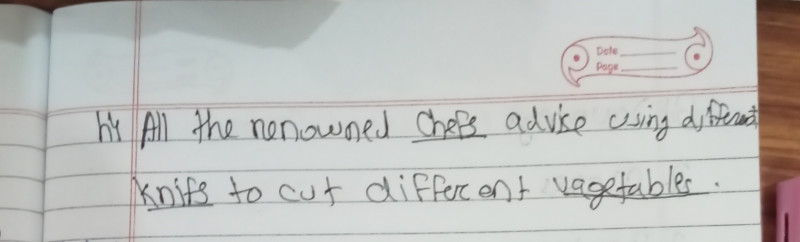 Date
Page
h4 All the renowned chefs advise using different
knifs to cut different vagetables.